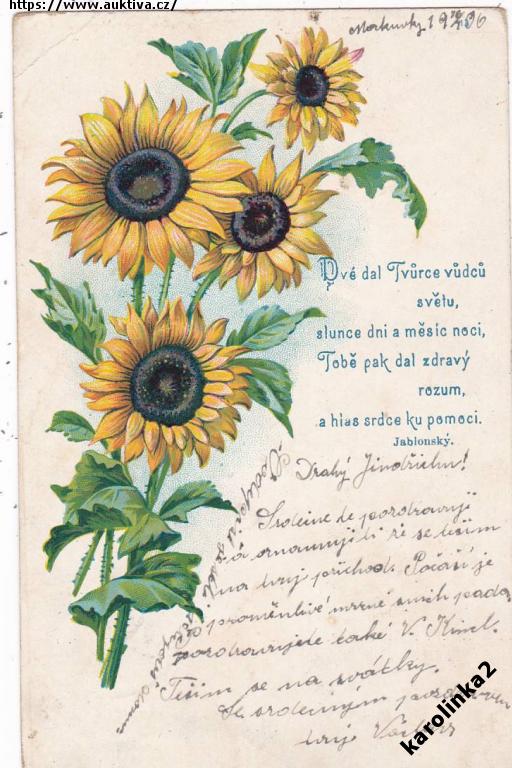 https://www.auktiva.cz/
Dvé dal Tvůrce vůdců
světu,
slunce dni a měsíc noci,
Tobě pak dal zdravý
rozum,
a hlas srdce ku pomoci.
Jablonský.
Drahý Jindřichu!
Srdečně te pozdravuji
a oznamuji ti že se těším
na tvůj příchod. Počasí je
proměnlivé mrzne sních padá
pozdravujete také V.
Těším se na svátky.
Se srdečným
tvůj
karolinka2